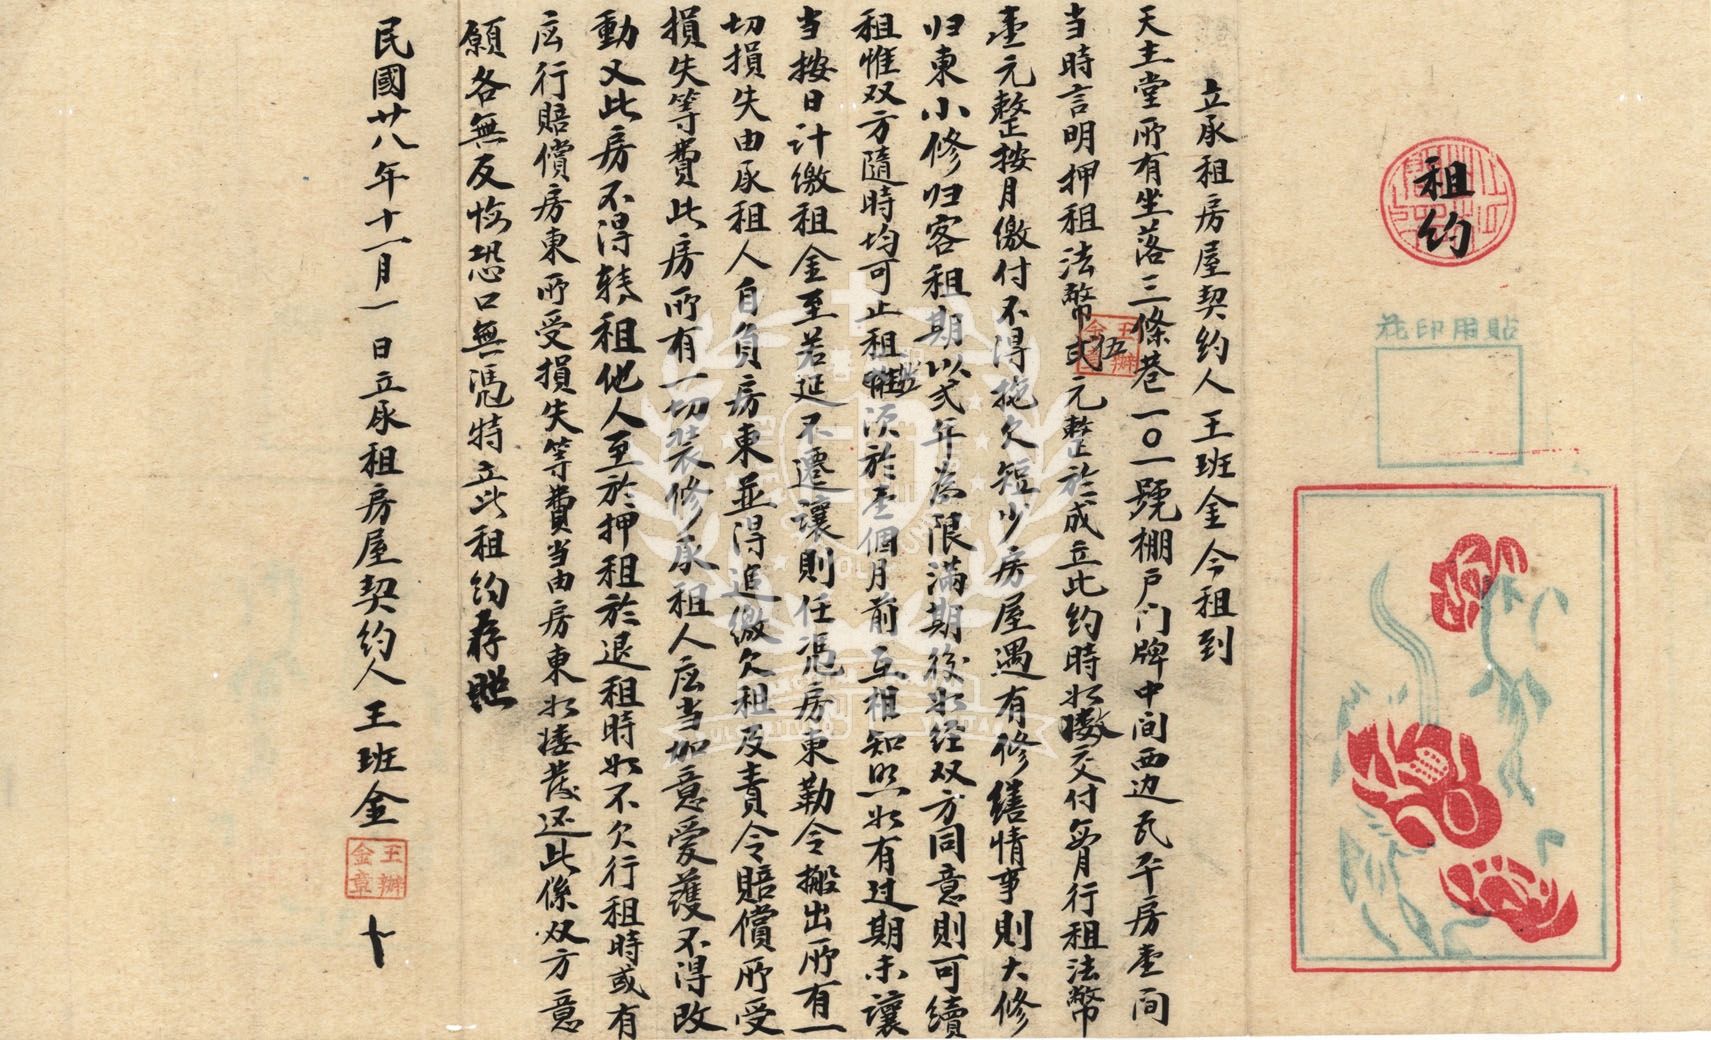 租约
貼用印花
立承租房屋契约人王班金今租到
天主堂所有坐落三條巷一〇一號棚戸门牌中间西边瓦平房壹间
当時言明押租法幣伍元整於成立此约時如數交付每月行租法幣
壹元整按月繳付不得拖欠短少房屋遇有修繕情事則大修
归東小修归客租期以弍年為限滿期後如经双方同意則可續
租惟双方隨時均可止租須於壹個月前互相知照如有过期未讓
当按日计繳租金至若延不遷讓則任憑房東勒令搬出所有一
切損失由承租人自負房東並得進繳欠租及責令賠償所受
損失等費此房所有一切装修承租人应当加意爱護不得改
動又此房不得转租他人至於押租於退租時如不欠行租時或有
应行賠償房東所受損失等費当由房東如摟發还此係双方意
願各無反悔恐口無憑特立此租约存照
民國廿八年十一月一日立承租房屋契约人王班金
王辦金章
十